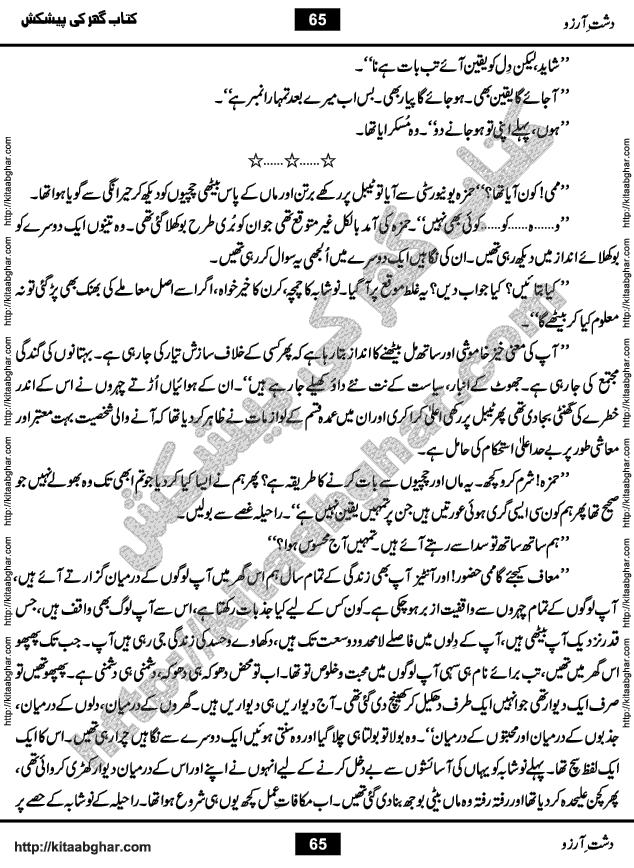 کتاب گھر کی پیشکش 65 دشتِ آرزو
’’شاید، لیکن دِل کو یقین آئے تب بات ہے نا‘‘۔
’’آ جائے گا یقین بھی۔ ہو جائے گا پیار بھی۔ بس اب میرے بعد تمہارا نمبر ہے‘‘۔
’’ہوں، پہلے اپنی تو ہو جانے دو‘‘۔ وہ مُسکرایا تھا۔
☆......☆......☆
’’ممی! کون آیا تھا؟‘‘ حمزہ یونیورسٹی سے آیا تو ٹیبل پر رکھے برتن اور ماں کے پاس بیٹھی چچیوں کو دیکھ کر حیرانگی سے گویا ہوا تھا۔
’’و......ہ......کو......کوئی بھی نہیں‘‘۔ حمزہ کی آمد بالکل غیر متوقع تھی جو ان کو بُری طرح بوکھلا گئی تھی۔ وہ تینوں ایک دوسرے کو
بوکھلائے انداز میں دیکھ رہی تھیں۔ ان کی نگاہیں ایک دوسرے میں اُلجھی یہ سوال کر رہی تھیں۔
’’کیا بتائیں؟ کیا جواب دیں؟ یہ غلط موقع پر آ گیا۔ نوشابہ کا چمچہ، کرن کا خیر خواہ، اگر اسے اصل معاملے کی بھنک بھی پڑ گئی تو نہ
معلوم کیا کر بیٹھے گا‘‘۔
’’آپ کی معنی خیز خاموشی اور ساتھ مل بیٹھنے کا انداز بتا رہا ہے کہ پھر کسی کے خلاف سازش تیار کی جا رہی ہے۔ بہتانوں کی گندگی
مجتمع کی جا رہی ہے۔ جھوٹ کے انبار، سیاست کے نت نئے داؤ کھیلے جا رہے ہیں‘‘۔ ان کے ہوائیاں اُڑتے چہروں نے اس کے اندر
خطرے کی گھنٹی بجا دی تھی پھر ٹیبل پر رکھی اعلیٰ کراکری اور ان میں عمدہ قسم کے لوازمات نے ظاہر کر دیا تھا کہ آنے والی شخصیت بہت معتبر اور
معاشی طور پر بے حد اعلیٰ استحکام کی حامل ہے۔
’’حمزہ! شرم کرو کچھ۔ یہ ماں اور چچیوں سے بات کرنے کا طریقہ ہے؟ پھر ہم نے ایسا کیا کر دیا جو تم ابھی تک وہ بھولے نہیں جو
صحیح تھا پھر ہم کون سی ایسی گری ہوئی عورتیں ہیں جن پر تمہیں یقین نہیں ہے‘‘۔ راحیلہ غصے سے بولیں۔
’’ہم ساتھ ساتھ تو سدا سے رہتے آئے ہیں۔ تمہیں آج محسوس ہوا؟‘‘
’’معاف کیجئے گا ممی حضور! اور آنٹیز آپ بھی زندگی کے تمام سال ہم اس گھر میں آپ لوگوں کے درمیان گزارتے آئے ہیں،
آپ لوگوں کے تمام چہروں سے واقفیت ازبر ہو چکی ہے۔ کون کس کے لیے کیا جذبات رکھتا ہے، اس سے آپ لوگ بھی واقف ہیں، جس
قدر نزدیک آپ بیٹھی ہیں، آپ کے دِلوں میں فاصلے لامحدود وسعت تک ہیں، دکھاوے و حسد کی زندگی جی رہی ہیں آپ۔ جب تک پھپھو
اس گھر میں تھیں، تب برائے نام ہی سہی آپ لوگوں میں محبت و خلوص تو تھا۔ اب تو محض دھوکہ ہی دھوکہ، دشمنی ہی دشمنی ہے۔ پھپھو تھیں تو
صرف ایک دیوار تھی جو انہیں ایک طرف دھکیل کر کھینچ دی گئی تھی۔ آج دیواریں ہی دیواریں ہیں۔ گھروں کے درمیان، دلوں کے درمیان،
جذبوں کے درمیان اور محبتوں کے درمیان‘‘۔ وہ بولا تو بولتا ہی چلا گیا اور وہ سنتی ہوئیں ایک دوسرے سے نگاہیں چرا رہی تھیں۔ اس کا ایک
ایک لفظ سچ تھا۔ پہلے نوشابہ کو یہاں کی آسائشوں سے بے دخل کرنے کے لیے انہوں نے اپنے اور اس کے درمیان دیوار کھڑی کروائی تھی،
پھر کچن علیحدہ کر دیا تھا اور رفتہ رفتہ وہ ماں بیٹی بوجھ بنا دی گئی تھیں۔ اب مکافاتِ عمل کچھ یوں ہی شروع ہوا تھا۔ راحیلہ کے نوشابہ کے حصے پر
http://kitaabghar.com 65 دشتِ آرزو
http://kitaabghar.com http://kitaabghar.com http://kitaabghar.com http://kitaabghar.com http://kitaabghar.com http://kitaabghar.com
http://kitaabghar.com http://kitaabghar.com http://kitaabghar.com http://kitaabghar.com http://kitaabghar.com http://kitaabghar.com
کتاب گھر کی پیشکش
http://kitaabghar.com